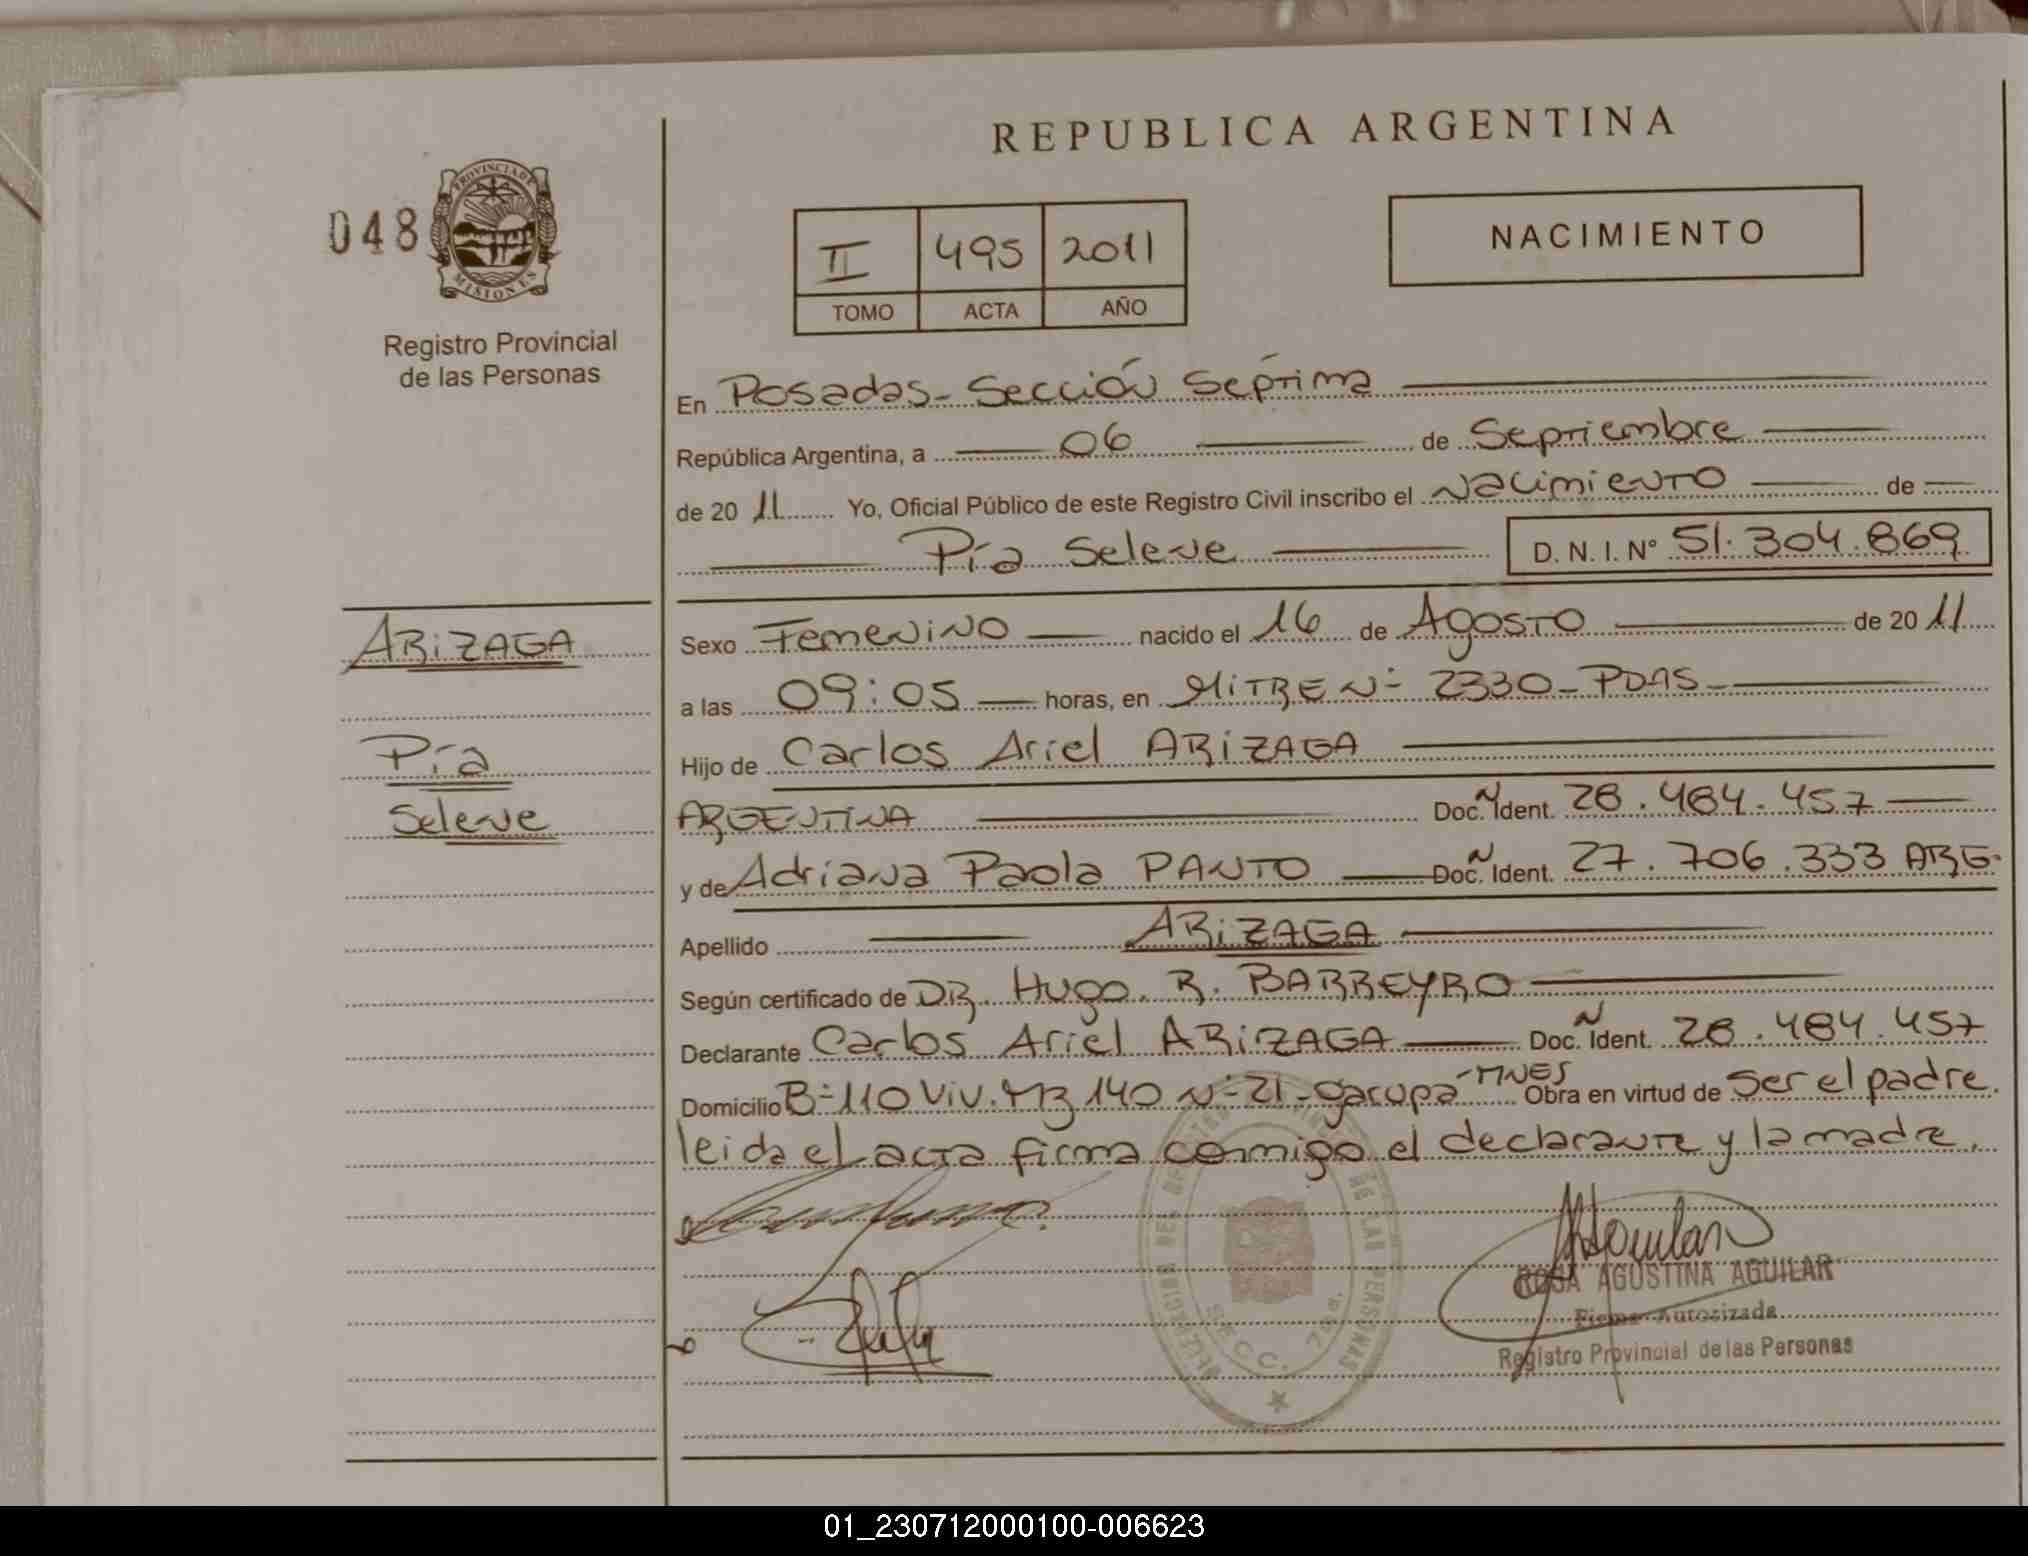 REPUBLICA ARGENTINA
048
PROVINCIA DE
MISIONES
Registro Provincial
de las Personas
II 495 2011
TOMO ACTA AÑO
NACIMIENTO
En Posadas - Sección Séptima
República Argentina, a 06 de Septiembre
de 2011 Yo, Oficial Público de este Registro Civil inscribo el Nacimiento de
Pía Selene D. N. I. N° 51.304.869
ARIZAGA
Pía
Selene
Sexo Femenino nacido el 16 de Agosto de 2011
a las 09:05 horas, en MITRE N° 2330 - PDAS -
Hijo de Carlos Ariel ARIZAGA
ARGENTINA Doc. N Ident. 28.484.457
y de Adriana Paola PANTO Doc. N Ident. 27.706.333 ARG.
Apellido ARIZAGA
Según certificado de DR. HUGO. R. BARREYRO
Declarante Carlos Ariel ARIZAGA Doc. N Ident. 28.484.457
Domicilio B° 110 Viv. Mz 140 N° 21 - Garupá - MNES Obra en virtud de ser el padre.
leida el acta firma conmigo el declarante y la madre.
DE LAS PERSONAS
SECC. 7ma.
ROSA AGUSTINA AGUILAR
Firma Autorizada
Registro Provincial de las Personas
01_230712000100-006623